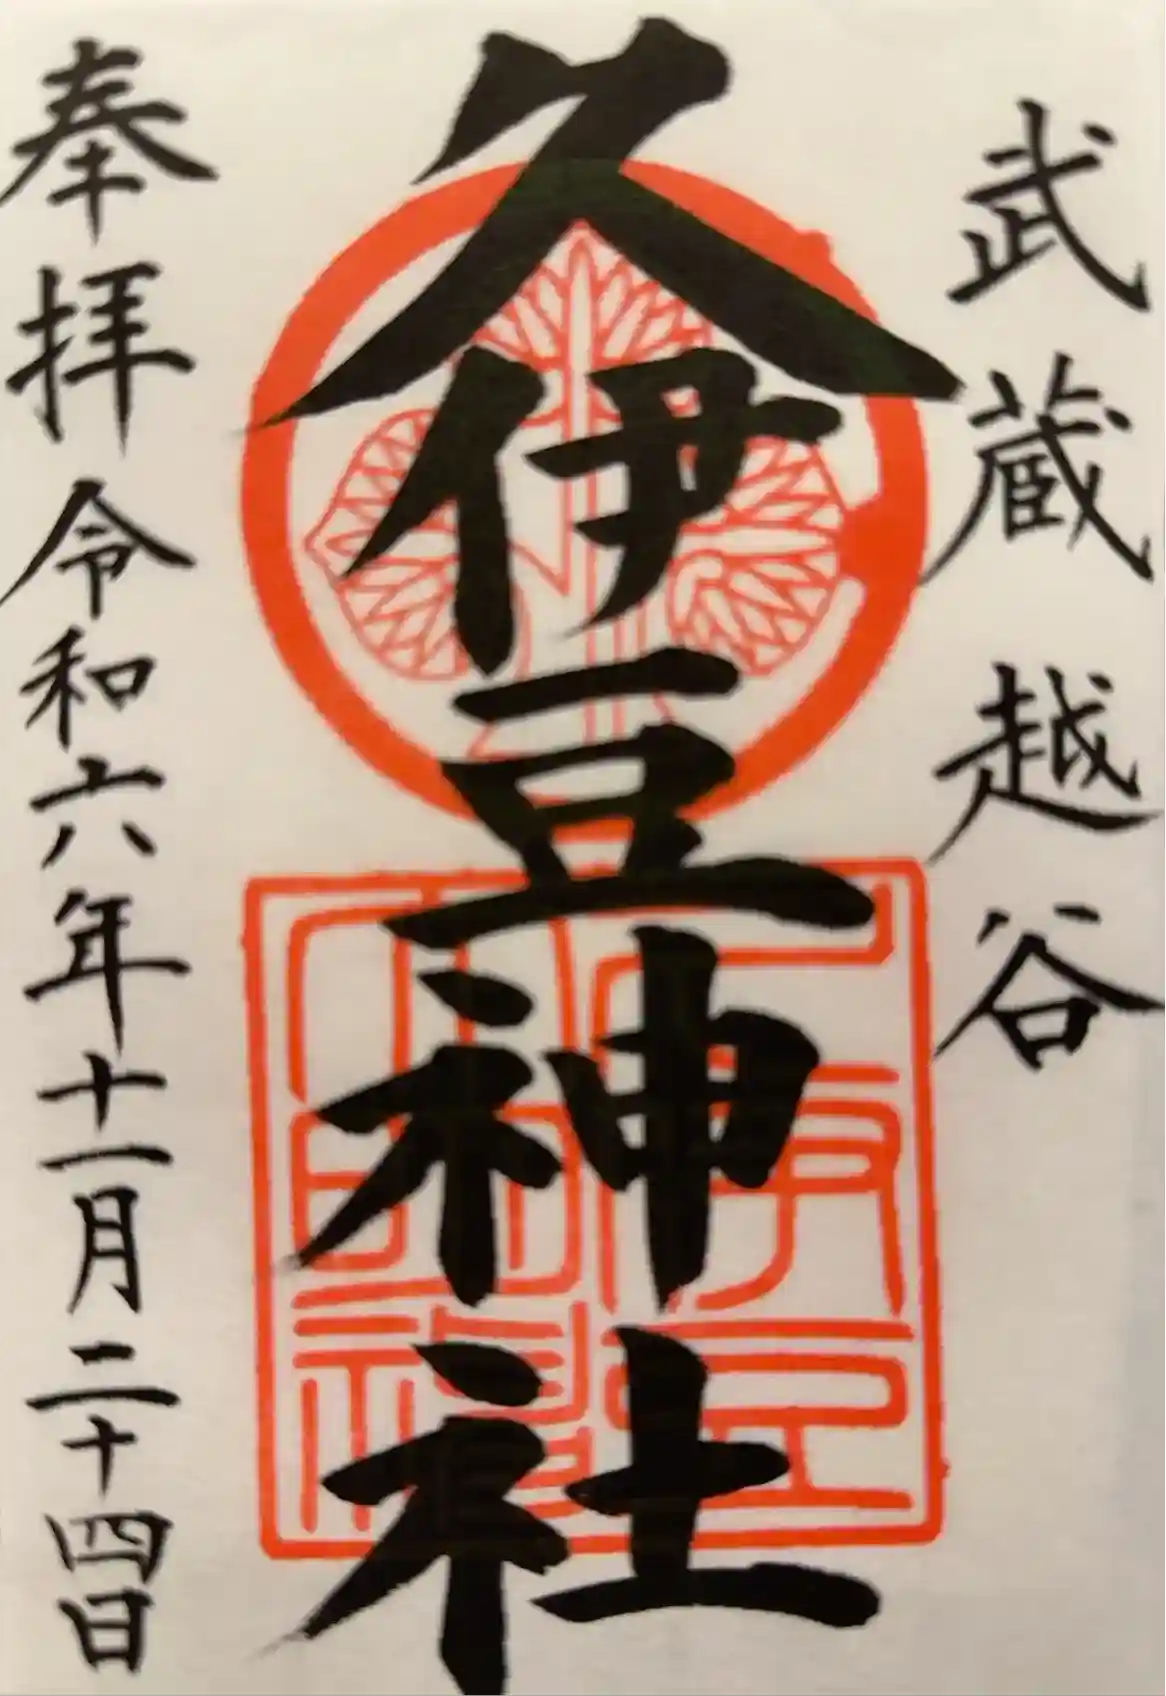 武蔵越谷
久伊豆神社
奉拝令和六年十一月二十四日